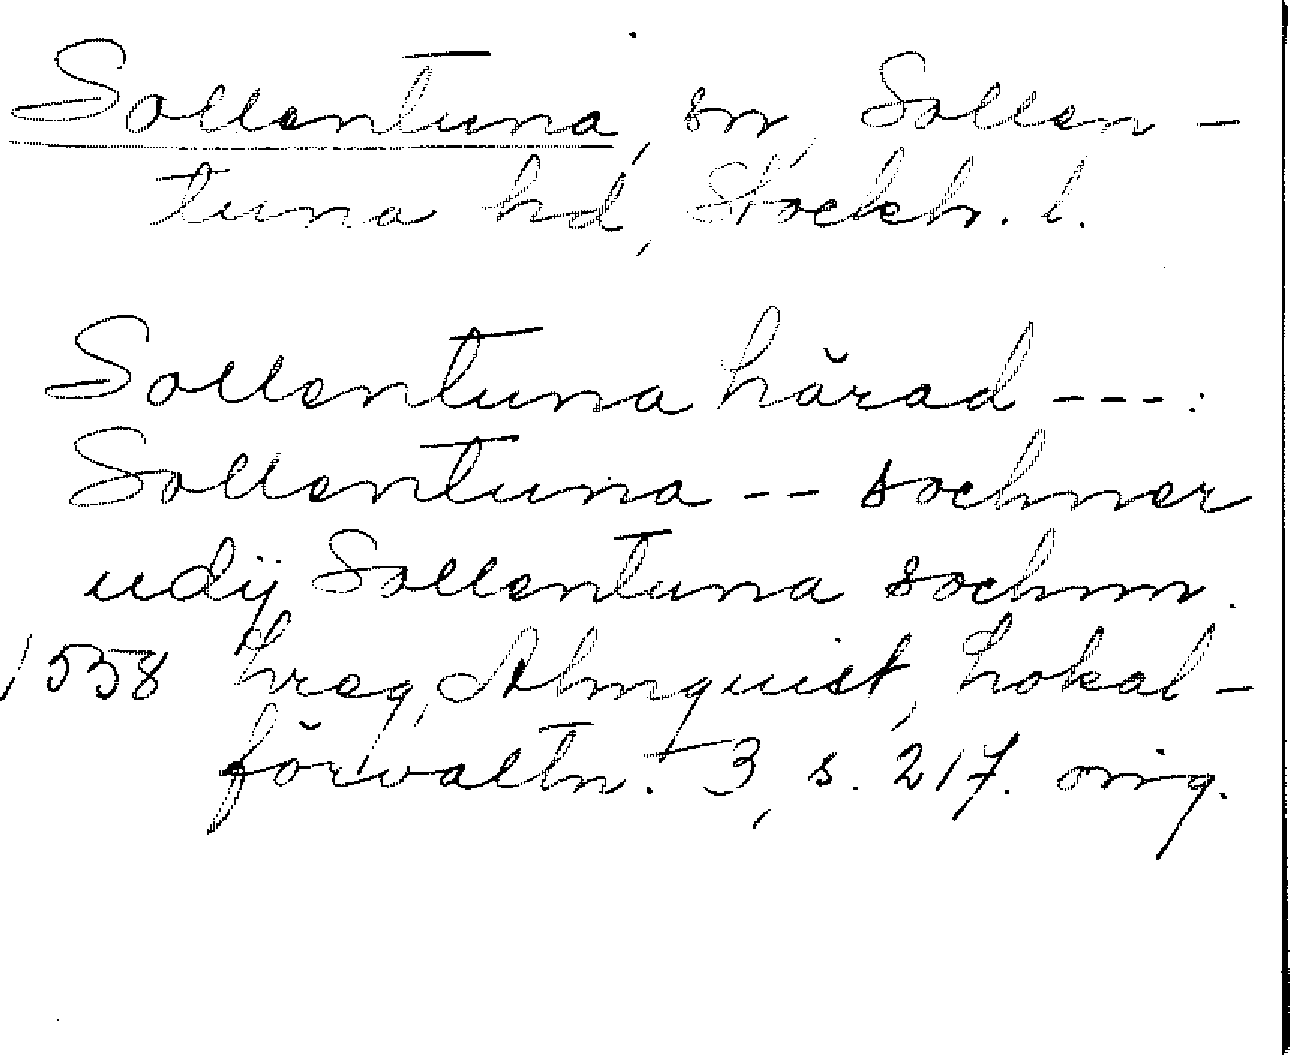 Sollentuna, sn, Sollen-
tuna hd, Stockh. l.
Sollentuna härad ---:
Sollentuna -- sochner
udij Sollentuna sochnn.
1558 hreg, Almquist, Lokal-
förvaltn. 3, s. 217. orig.